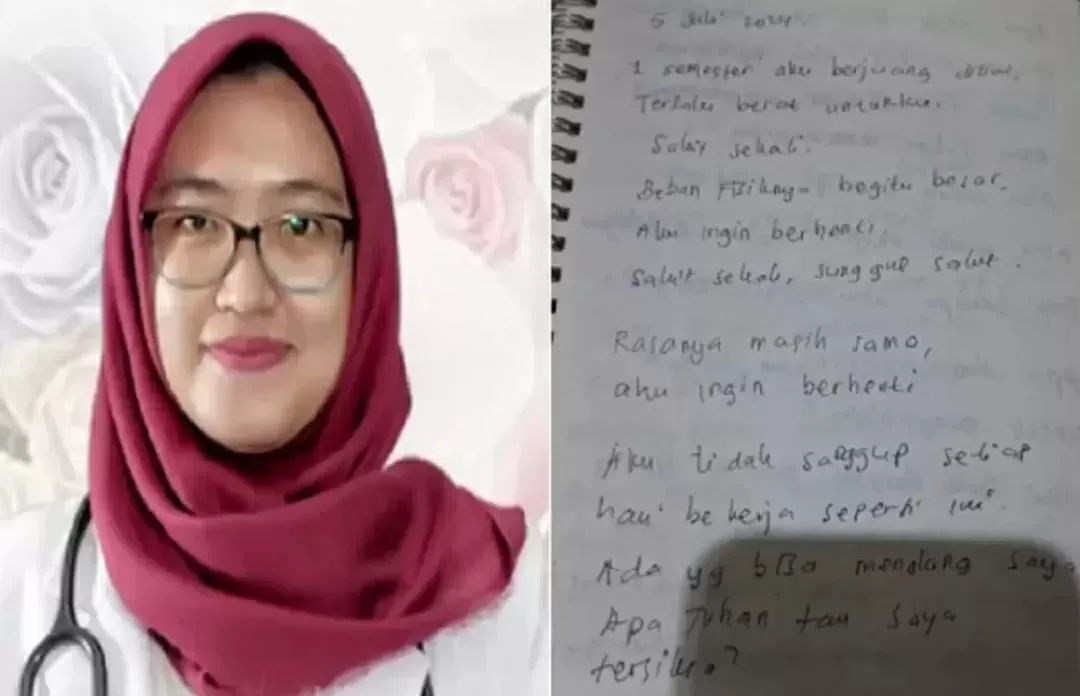 5 Juli 2024.
1 semester aku berjuang disini.
Terlalu berat untukku.
Sakit sekali.
Beban Fisiknya begitu besar.
Aku ingin berhenti.
Sakit sekali, sungguh sakit.
Rasanya masih sama,
aku ingin berhenti
Aku tidak sanggup setiap
hari bekerja seperti ini.
Ada yg bisa menolong saya
Apa Tuhan tau saya
tersiksa?